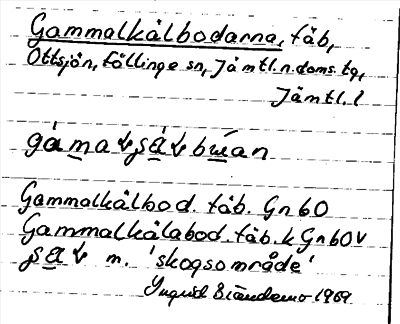 Gammalkålbodarna, fäb,
Ottsjön, Föllinge sn, Jämtl. n. doms. tg,
Jämtl. l
Gammalkålbod. fäb. Gn 60
Gammalkålabod. fäb. k Gn 60 v
m. 'skogsområde'
Ingrid 1969